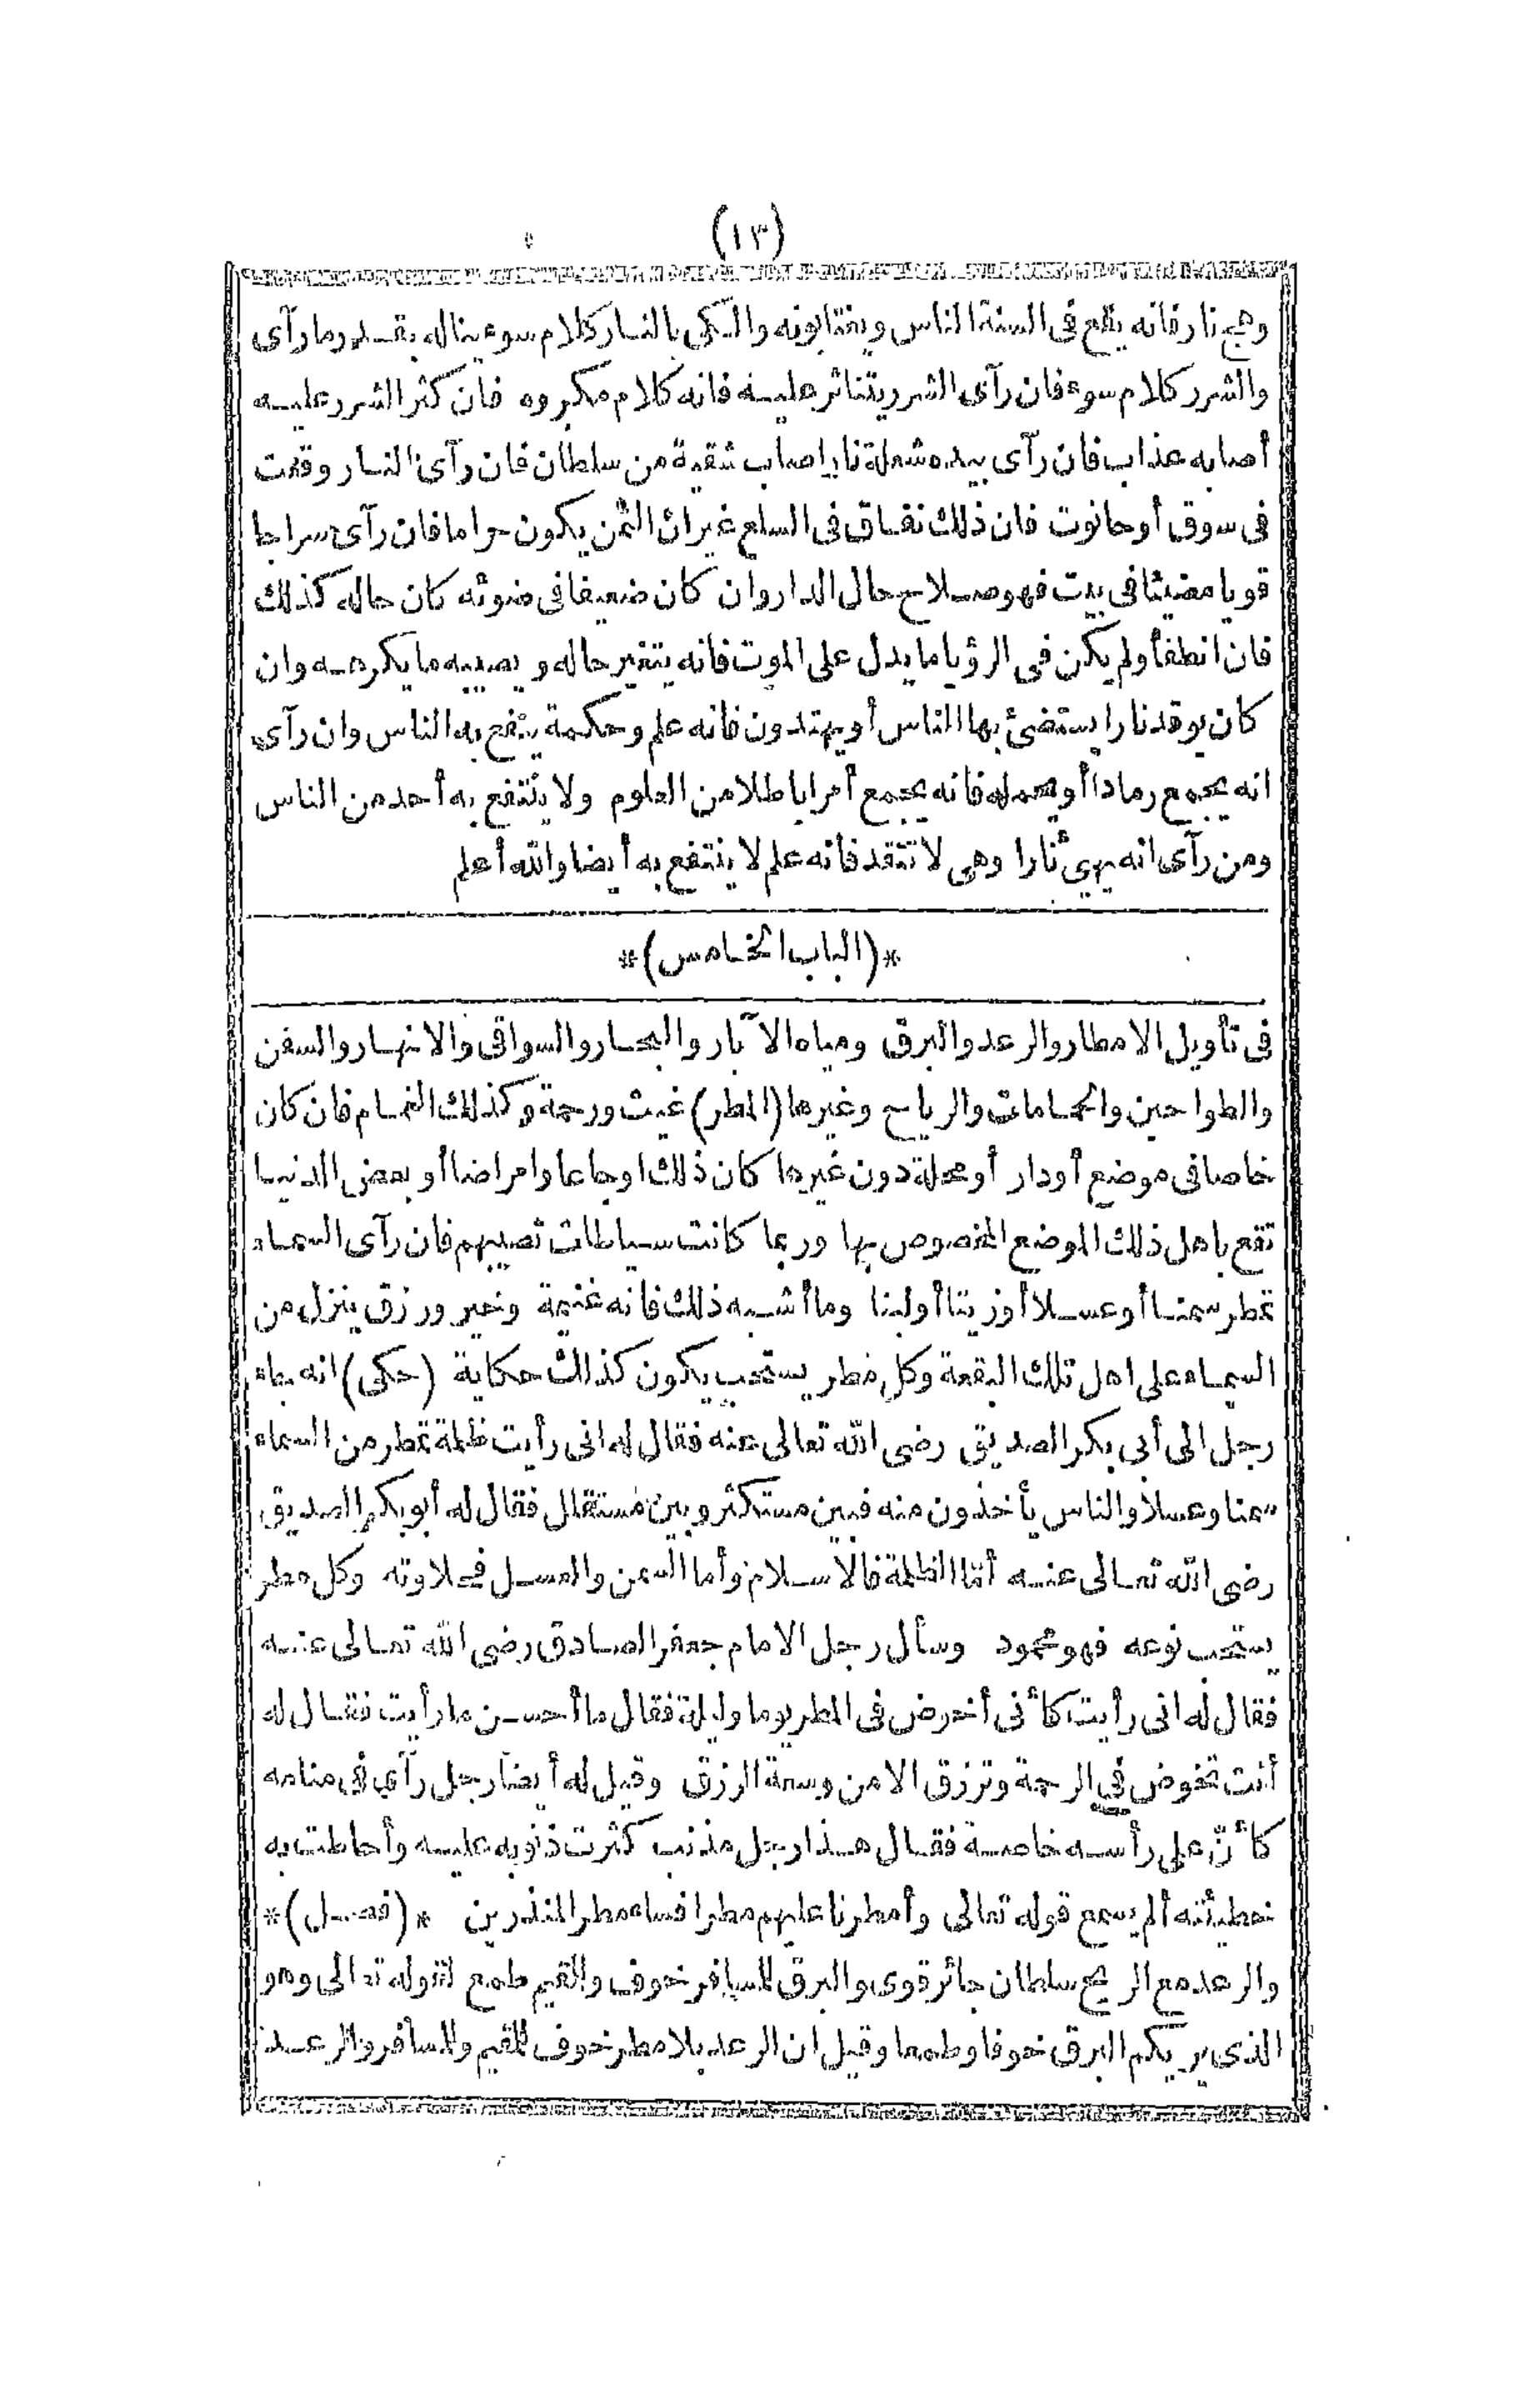 (١٣)
وهج نار فانه يقع فى السنة الناس ويغتابونه والكى بالنار كلام سوء يناله بقدر ما رآى
والشرر كلام سوء فان رآى الشرر يتناثر عليه فانه كلام مكروه فان كثر الشرر عليه
أصابه عذاب فان رآى بيده شعلة نار اصاب شقية من سلطان فان رآى النار وقعت
فى سوق أو حانوت فان ذلك نفاق فى السلع غير ان الثمن يكون حراما فان رآى سراجا
قويا مضيئا فى بيت فهو صلاح حال الدار وان كان ضعيفا فى ضوئه كان حاله كذلك
فان انطفأ ولم يكن فى الرؤيا ما يدل على الموت فانه يتغير حاله ويصيبه ما يكرهه وان
كان يوقد نارا يستضئ بها الناس أو يهتدون فانه علم وحكمة ينتفع به الناس وان رآى
انه يجمع رمادا أو يحمله فانه يجمع أمرا باطلا من العلوم ولا ينتفع به أحد من الناس
ومن رآى انه يهيئ نارا وهى لا تتقد فانه علم لا ينتفع به أيضا والله أعلم
*(الباب الخامس)*
فى تأويل الامطار والرعد والبرق ومياه الآبار والبحار والسواقى والانهار والسفن
والطواحين والحمامات والرياح وغيرها (المطر) غيث ورحمة وكذلك الغمام فان كان
خاصا فى موضع أو دار أو محلة دون غيرها كان ذلك اوجاعا وامراضا أو بعض الدنيا
تقع باهل ذلك الموضع المخصوص بها وربما كانت سياطات تصيبهم فان رآى السماء
تمطر سمنا أو عسلا أو زيتا أو لبنا وما أشبه ذلك فانه غنيمة وخير ورزق ينزل من
السماء على اهل تلك البقعة وكل مطر يستحب يكون كذلك حكاية (حكى) انه جاء
رجل الى أبى بكر الصديق رضى الله تعالى عنه فقال له انى رأيت ظلمة تمطر من السماء
سمنا وعسلا والناس يأخذون منه فبين مستكثر وبين مستقلل فقال له أبو بكر الصديق
رضى الله تعالى عنه أمّا الظلمة فالاسلام وأما السمن والعسل فحلاوته وكل مطر
يستحب نوعه فهو محمود وسأل رجل الامام جعفر الصادق رضى الله تعالى عنه
فقال له انى رأيت كأنى أخوض فى المطر يوما وليلة فقال ما أحسن ما رأيت فقال له
أنت تخوض فى الرحمة وترزق الامن وسعة الرزق وقيل له أيضا رجل رآى فى منامه
كأنّ على رأسه خاصة فقال هذا رجل مذنب كثرت ذنوبه عليه وأحاطت به
خطيئته ألم يسمع قوله تعالى وأمطرنا عليهم مطرا فساء مطر المنذرين *(فصل)*
والرعد مع الريح سلطان جائر قوى والبرق للمسافر خوف والمقيم طمع لقوله تعالى وهو
الذى يريكم البرق خوفا وطمعا وقيل ان الرعد بلا مطر خوف للمقيم والمسافر والرعد